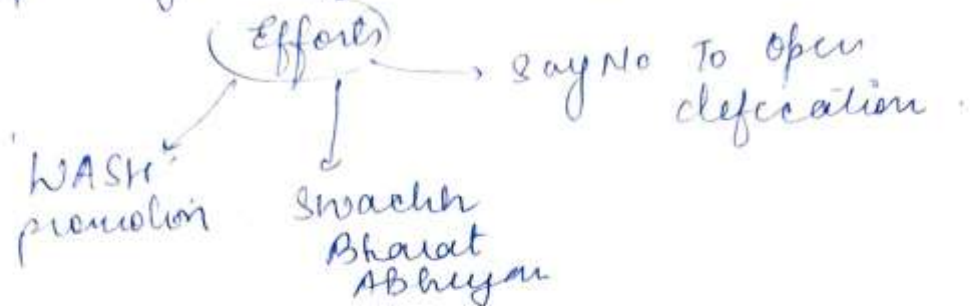 Efforts
Say No To Open
defecation.
"WASH"
promotion
Swachh
Bharat
ABhiyan